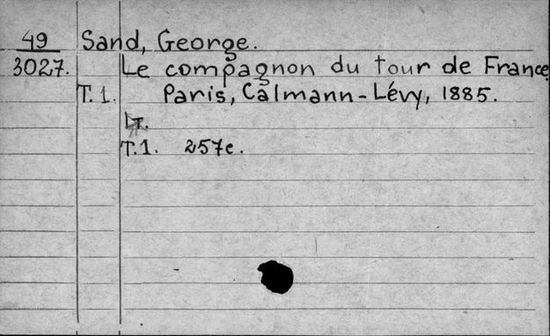 49 Sand, George.
3027. Le compagnon du tour de France
T.1. Paris, Calmann-Lévy, 1885.
T.1. 257c.